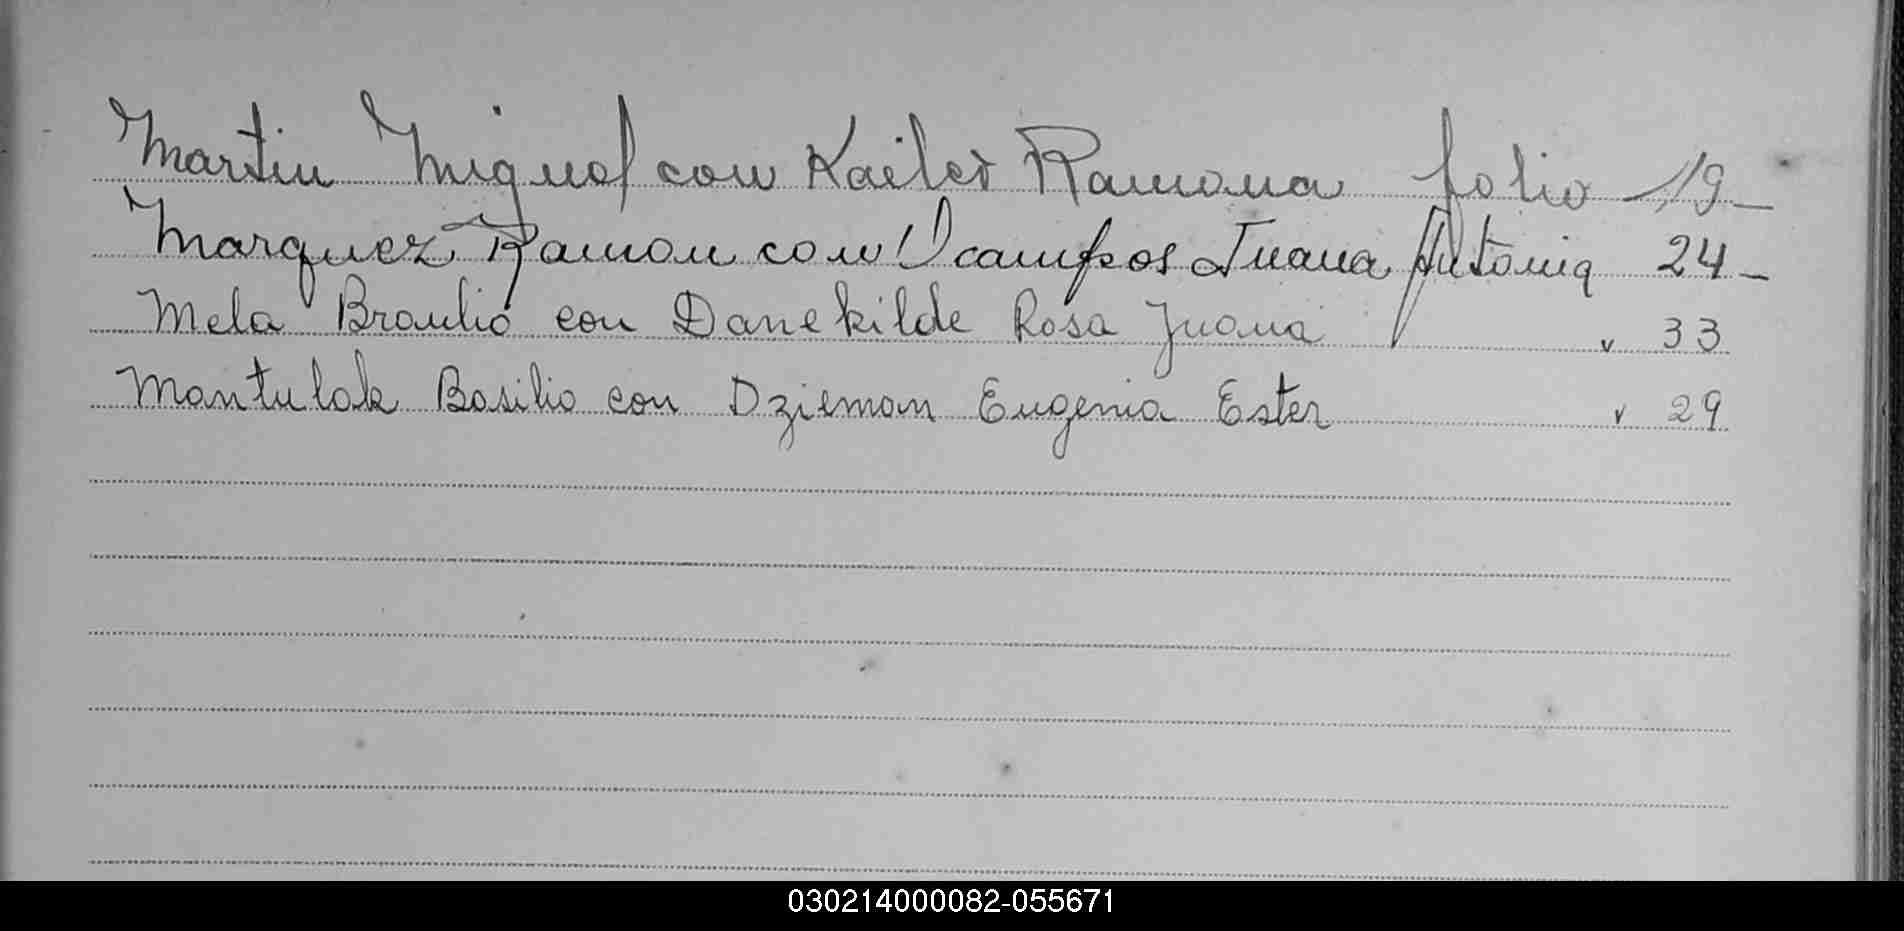 Martin Miguel con Kailer Ramona folio 19-
Marquez Ramon con Ocampos Juana Antonia 24-
Mela Braulio con Danekilde Rosa Juana v 33
Mantulak Basilio con Dzieman Eugenia Ester v 29
030214000082-055671